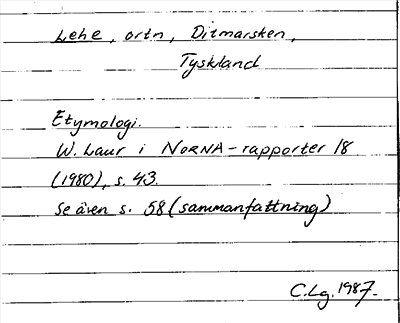 Lehe, ortn, Ditmarsken,
Tyskland
Etymologi.
W. Laur i NORNA-rapporter 18
(1980), s. 43.
Se även s. 58 (sammanfattning)
C.Lg. 1987.